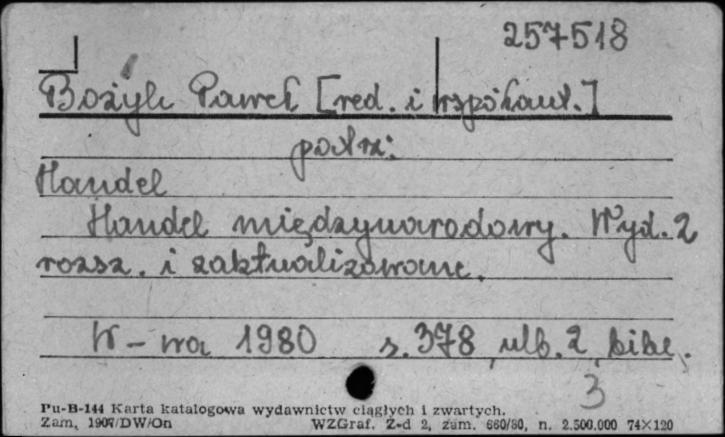 257518
Bożyk Paweł [red. i współaut.]
patrz:
Handel
Handel międzynarodowy. Wyd. 2
rozsz. i zaktualizowane.
W-wa 1980 s. 378, nlb. 2, bibl.
3
Pu-B-144 Karta katalogowa wydawnictw ciągłych i zwartych.
Zam. 1907/DW/On WZGraf. Z-d 2, zam. 660/80, n. 2.500.000 74×120